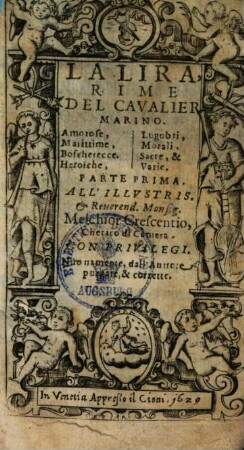 LA LIRA
RIME
DEL CAVALIER
MARINO.
Amorose,
Maritime,
Boscherecce,
Heroiche,
Lugubri,
Morali,
Sacre, &
Varie.
PARTE PRIMA.
ALL'ILLVSTRIS.
& Reuerend. Monsig.
Melchior Crescentio,
Cherico di Camera
CON PRIVILEGI.
Nuouamente, dall'Autore
purgate, & corrette.
AUGSBURG
In Venetia Appresso il Cioti. 1629